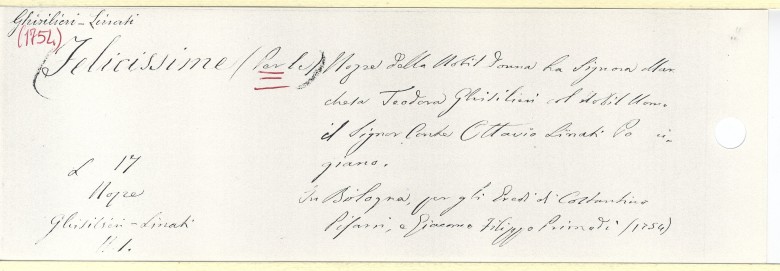 Ghisilieri-Linati
(1754)
Felicissime (Per le) Nozze della Nobil Donna la Signora Mar
chesa Teodora Ghisilieri col Nobil Uomo
il Signor Conte Ottavio Linati Po
giano.
L 17
Nozze
Ghisilieri-Linati
N. 1.
In Bologna, per gli Eredi di Costantino
Pisarri, e Giacomo Filippo Primodì (1754)